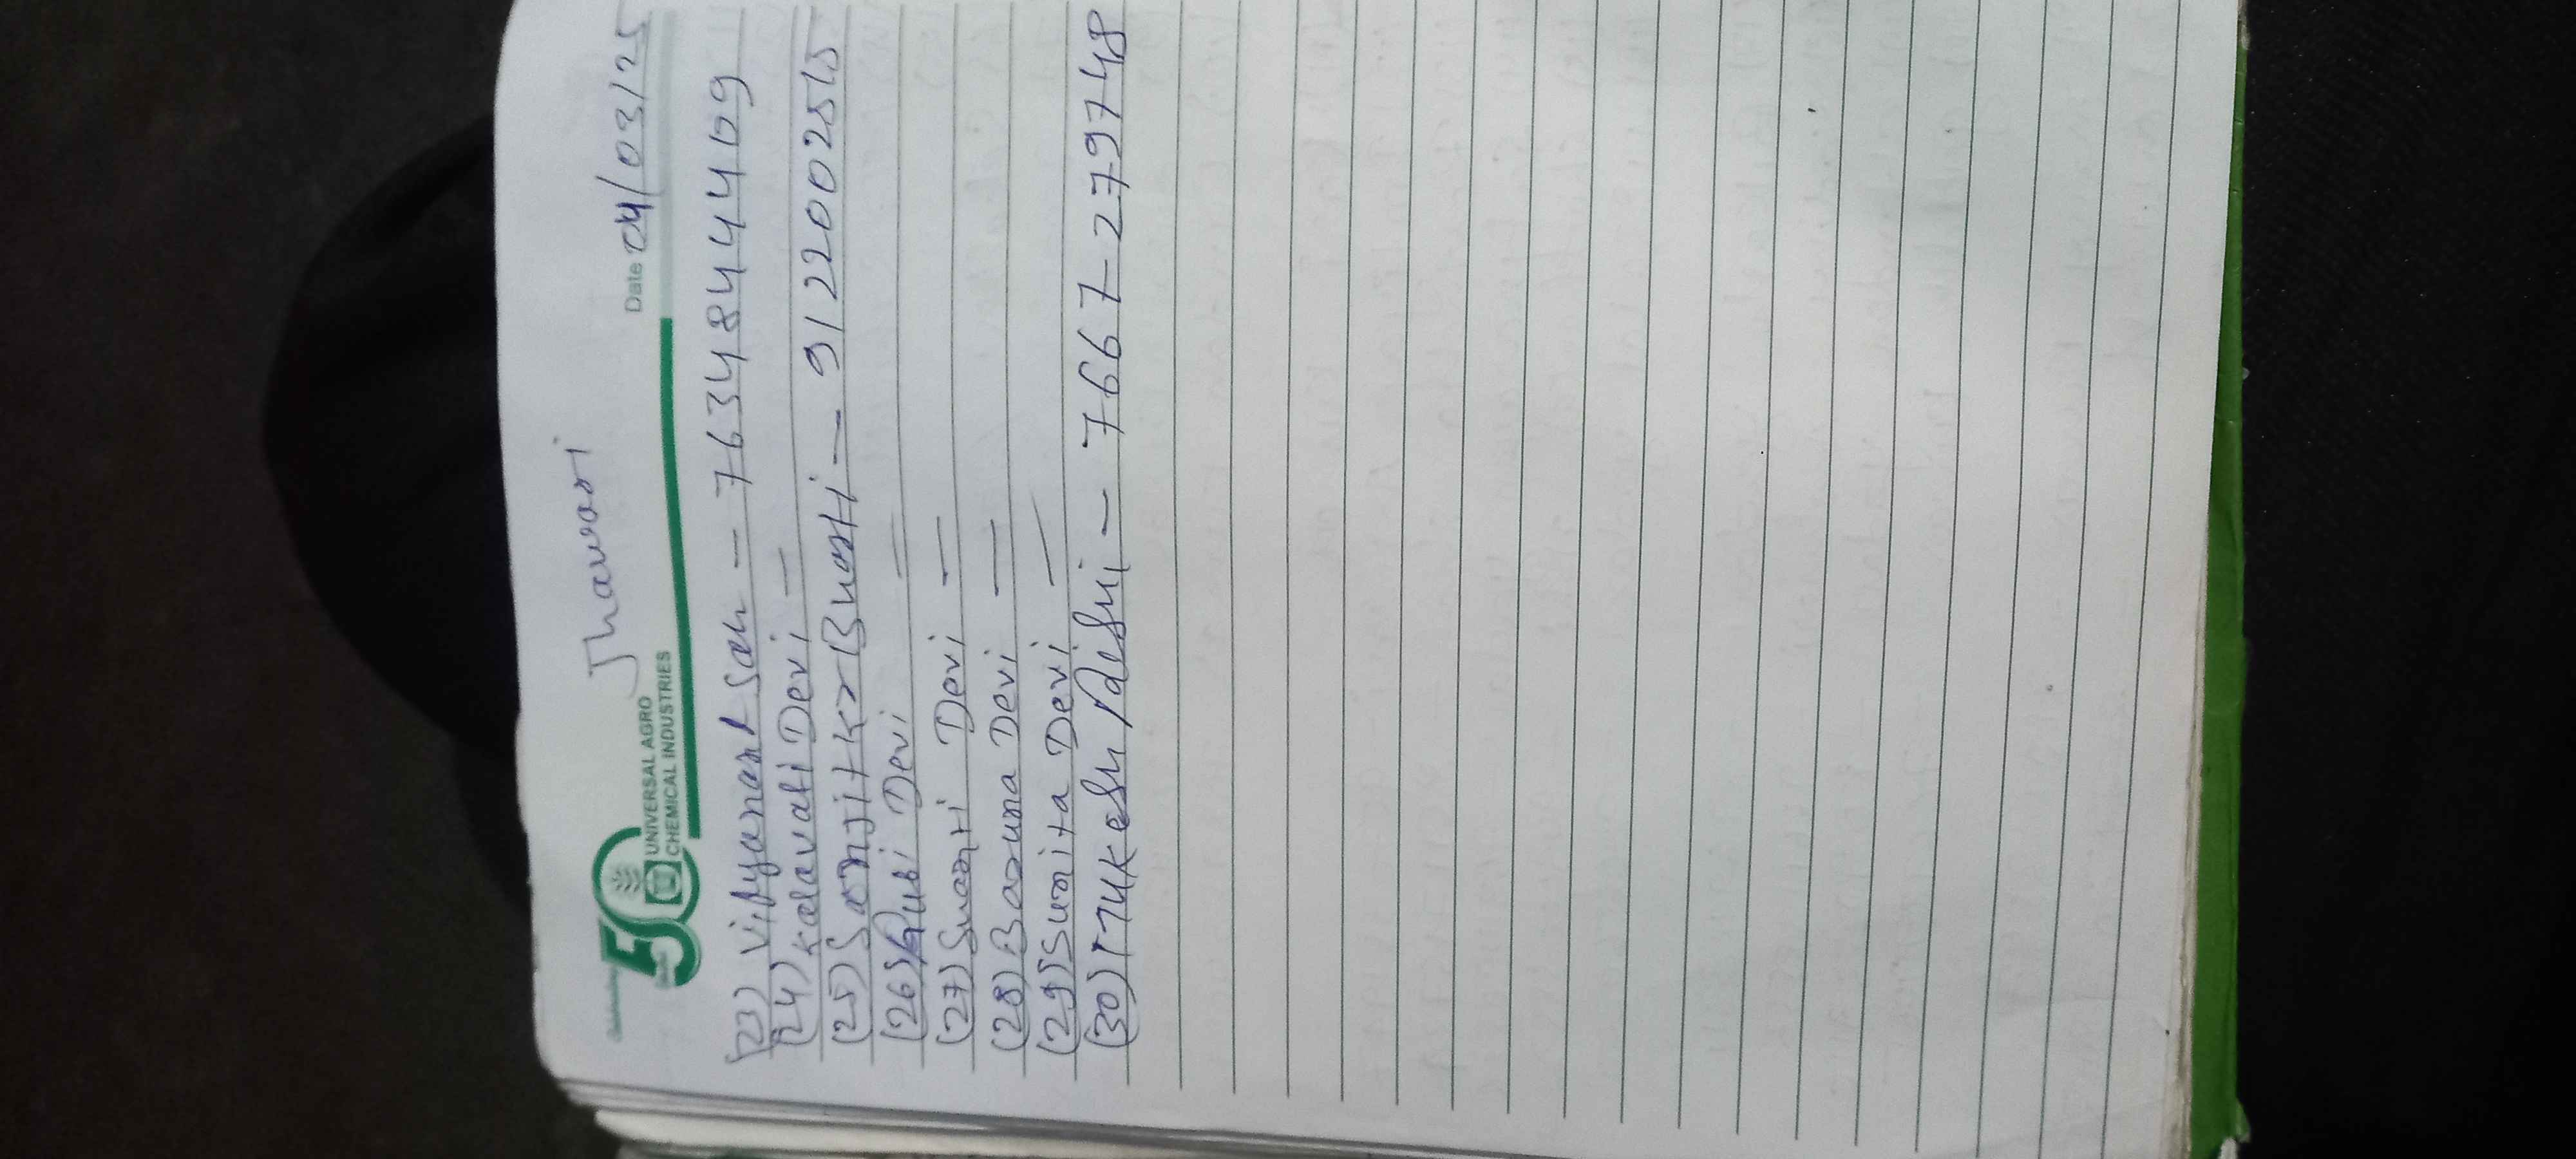 Jhawari
50
UNIVERSAL AGRO
CHEMICAL INDUSTRIES
Date 04/03/25
(23) Vidyanand Sah - 7634844409
(24) Kalavati Devi -
(25) Sanjit Kr Bharti - 9122002515
(26) Rubi Devi =
(27) Devi =
(28) Devi =
(29) Sunita Devi -
(30) Mukesh - 7667-279748